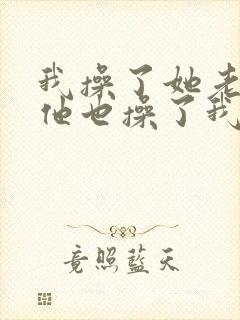 我操了她老
他也操了我
竟照蓝天